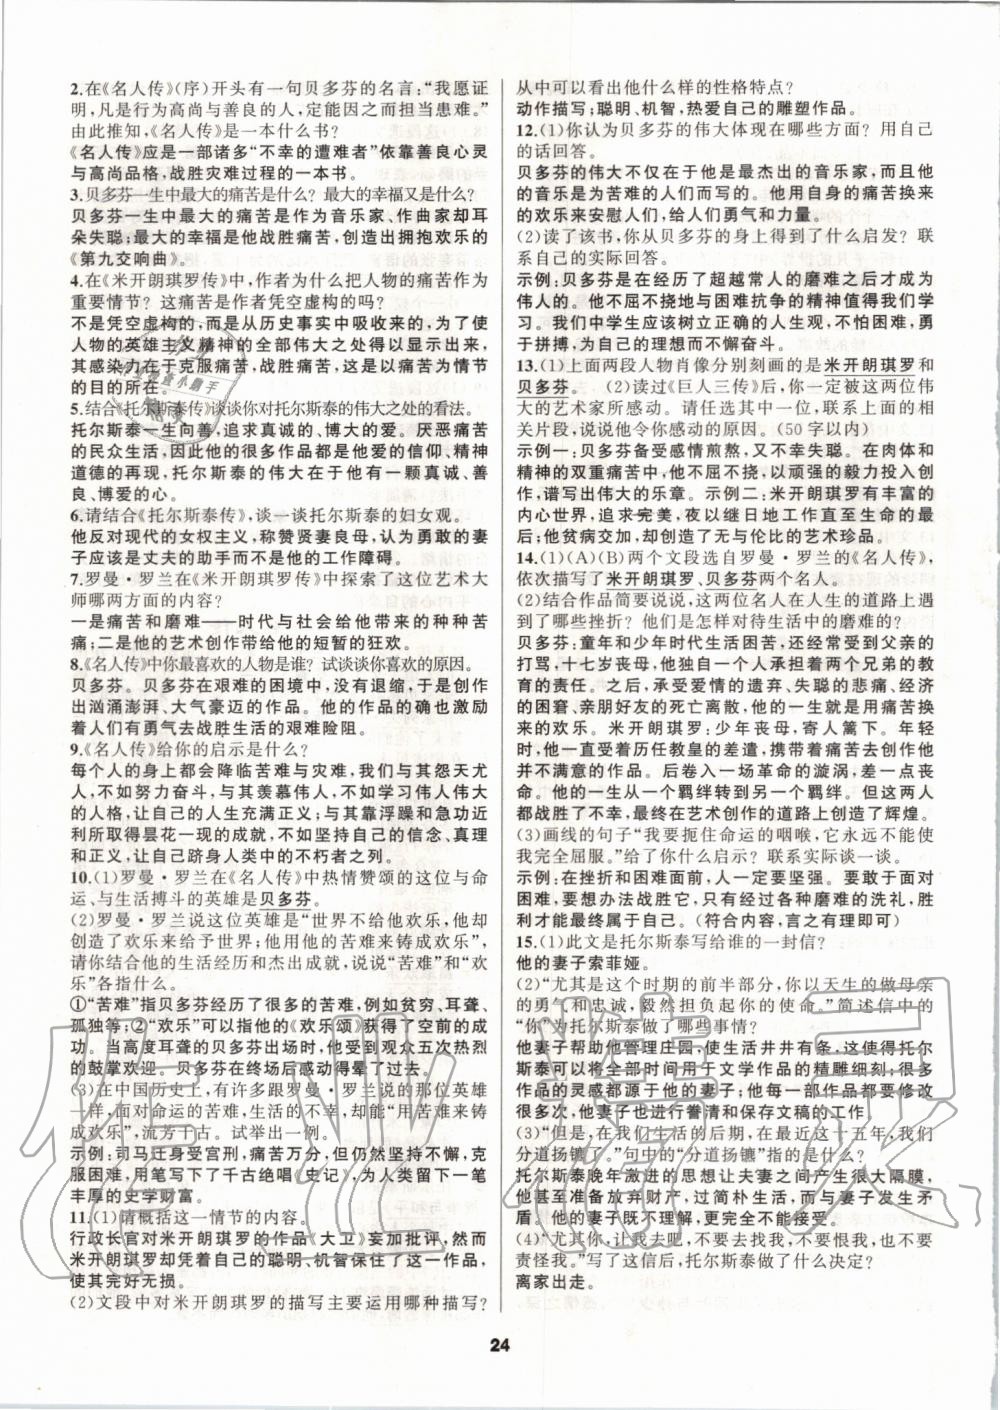 2.在《名人传》(序)开头有一句贝多芬的名言:“我愿证
明,凡是行为高尚与善良的人,定能因之而担当患难。”
由此推知,《名人传》是一本什么书?
《名人传》应是一部诸多“不幸的遭难者”依靠善良心灵
与高尚品格,战胜灾难过程的一本书。
3.贝多芬一生中最大的痛苦是什么? 最大的幸福又是什么?
贝多芬一生中最大的痛苦是作为音乐家、作曲家却耳
朵失聪;最大的幸福是他战胜痛苦,创造出拥抱欢乐的
《第九交响曲》。
4.在《米开朗琪罗传》中,作者为什么把人物的痛苦作为
重要情节? 这痛苦是作者凭空虚构的吗?
不是凭空虚构的,而是从历史事实中吸收来的,为了使
人物的英雄主义精神的全部伟大之处得以显示出来,
其感动力在于克服痛苦,甚至是以痛苦为情节
的目的所在。
5.结合《托尔斯泰传》谈谈你对托尔斯泰的伟大之处的看法。
托尔斯泰一生向善,追求真诚的、博大的爱。厌恶痛苦
的民众生活,因此他的很多作品都是他爱的信仰、精神
道德的再现,托尔斯泰的伟大在于他有一颗真诚、善
良、博爱的心。
6.请结合《托尔斯泰传》,谈一谈托尔斯泰的妇女观。
他反对现代的女权主义,称赞贤妻良母,认为勇敢的妻
子应该是丈夫的助手而不是他的工作障碍。
7.罗曼·罗兰在《米开朗琪罗传》中探索了这位艺术大
师哪两方面的内容?
一是痛苦和磨难——时代与社会给他带来的种种苦
痛;二是他的艺术创作带给他的短暂的狂欢。
8.《名人传》中你最喜欢的人物是谁? 试谈谈你喜欢的原因。
贝多芬。贝多芬在艰难的困境中,没有退缩,于是创作
出汹涌澎湃、大气豪迈的作品。他的作品的确也激励
着人们有勇气去战胜生活的艰难险阻。
9.《名人传》给你的启示是什么?
每个人的身上都会降临苦难与灾难,我们与其怨天尤
人,不如努力奋斗,与其羡慕伟人,不如学习伟人伟大
的人格,让自己的人生充满正义;与其靠浮躁和急功近
利所取得昙花一现的成就,不如坚持自己的信念、真理
和正义,让自己跻身人类中的不朽者之列。
10.(1)罗曼·罗兰在《名人传》中热情赞颂的这位与命
运、与生活搏斗的英雄是贝多芬。
(2)罗曼·罗兰说这位英雄是“世界不给他欢乐,他却
创造了欢乐来给予世界;他用他的苦难来铸成欢乐”,
请你结合他的生活经历和杰出成就,说说“苦难”和“欢
乐”各指什么。
①“苦难”指贝多芬经历了很多的苦难,例如贫穷、耳聋、
孤独等;②“欢乐”可以指他的《欢乐颂》获得了空前的成
功。当高度耳聋的贝多芬出场时,他受到观众五次热烈
的鼓掌欢迎。贝多芬在终场后感动得晕了过去。
(3)在中国历史上,有许多跟罗曼·罗兰说的那位英雄
一样,面对命运的苦难,生活的不幸,却能“用苦难来铸
成欢乐”,流芳千古。试举出一例。
示例:司马迁身受宫刑,痛苦万分,但仍然坚持不懈,克
服困难,用笔写下了千古绝唱《史记》,为人类留下一笔
丰厚的史学财富。
11.(1)请概括这一情节的内容。
行政长官对米开朗琪罗的作品《大卫》妄加批评,然而
米开朗琪罗却凭着自己的聪明、机智保住了这一作品,
使其完好无损。
(2)文段中对米开朗琪罗的描写主要运用哪种描写?
从中可以看出他什么样的性格特点?
动作描写;聪明、机智,热爱自己的雕塑作品。
12.(1)你认为贝多芬的伟大体现在哪些方面? 用自己
的话回答。
贝多芬的伟大不仅在于他是最杰出的音乐家,而且在他
的音乐是为苦难的人们而写的。他用自身的痛苦换来
的欢乐来安慰人们,给人们勇气和力量。
(2)读了该书,你从贝多芬的身上得到了什么启发? 联
系自己的实际回答。
示例:贝多芬是在经历了超越常人的磨难之后才成为
伟人的。他不屈不挠地与困难抗争的精神值得我们学
习。我们中学生应该树立正确的人生观,不怕困难,勇
于拼搏,为自己的理想而不懈奋斗。
13.(1)上面两段人物肖像分别刻画的是米开朗琪罗和
贝多芬。 (2)读过《巨人三传》后,你一定被这两位伟
大的艺术家所感动。请任选其中一位,联系上面的相
关片段,说说他令你感动的原因。(50字以内)
示例一:贝多芬备受感情煎熬,又不幸失聪。在肉体和
精神的双重痛苦中,他不屈不挠,以顽强的毅力投入创
作,谱写出伟大的乐章。示例二:米开朗琪罗有丰富的
内心世界,追求完美,夜以继日地工作直至生命的最
后,他贫病交加,却创造了无与伦比的艺术珍品。
14.(1)(A)(B)两个文段选自罗曼·罗兰的《名人传》,
依次描写了米开朗琪罗、贝多芬两个名人。
(2)结合作品简要说说,这两位名人在人生的道路上遇
到了哪些挫折? 他们是怎样对待生活中的磨难的?
贝多芬:童年和少年时代生活困苦,还经常受到父亲的
打骂,十七岁丧母,他独自一人承担着两个兄弟的教育
的责任。之后,承受爱情的遗弃、失聪的悲痛、经济
的困窘、亲朋好友的死亡离散,他的一生就是用痛苦
换来的欢乐。米开朗琪罗:少年丧母,寄人篱下。年轻
时,他一直受着历任教皇的差遣,携带着痛苦去创作他
并不满意的作品。后卷入一场革命的漩涡,差一点丧
命。他的一生从一个羁绊转到另一个羁绊。但这两人
都战胜了不幸,最终在艺术创作的道路上创造了辉煌。
(3)画线的句子“我要扼住命运的咽喉,它永远不能使
我完全屈服。”给了你什么启示? 联系实际谈一谈。
示例:在挫折和困难面前,人一定要坚强。要敢于面对
困难,要想办法战胜它,只有经过各种磨难的洗礼,胜
利才能最终属于自己。(符合内容,言之有理即可)
15.(1)此文是托尔斯泰写给谁的一封信?
他的妻子索菲娅。
(2)“尤其是这个时期的前半部分,你以天生的做母亲
的勇气和忠诚,毅然担负起你的使命。”简述信中的
“你”为托尔斯泰做了哪些事情?
他妻子帮助他管理庄园,使生活井井有条,这使得托尔
斯泰可以将全部时间用于文学作品的精雕细刻;很多
作品的灵感都源于他的妻子;他每一部作品都要修改
很多次,他妻子也进行誊清和保存文稿的工作。
(3)“但是,在我们生活的后期,在最近这十五年,我们
分道扬镳了。”句中的“分道扬镳”指的是什么?
托尔斯泰晚年激进的思想让夫妻之间产生很大隔膜,
他甚至准备放弃财产,过简朴生活,而与妻子发生矛
盾。他的妻子既不理解,更完全不能接受。
(4)“尤其你,让我去吧,不要去找我,不要恨我,也不要
责怪我。”写了这信后,托尔斯泰做了什么决定?
离家出走。
24